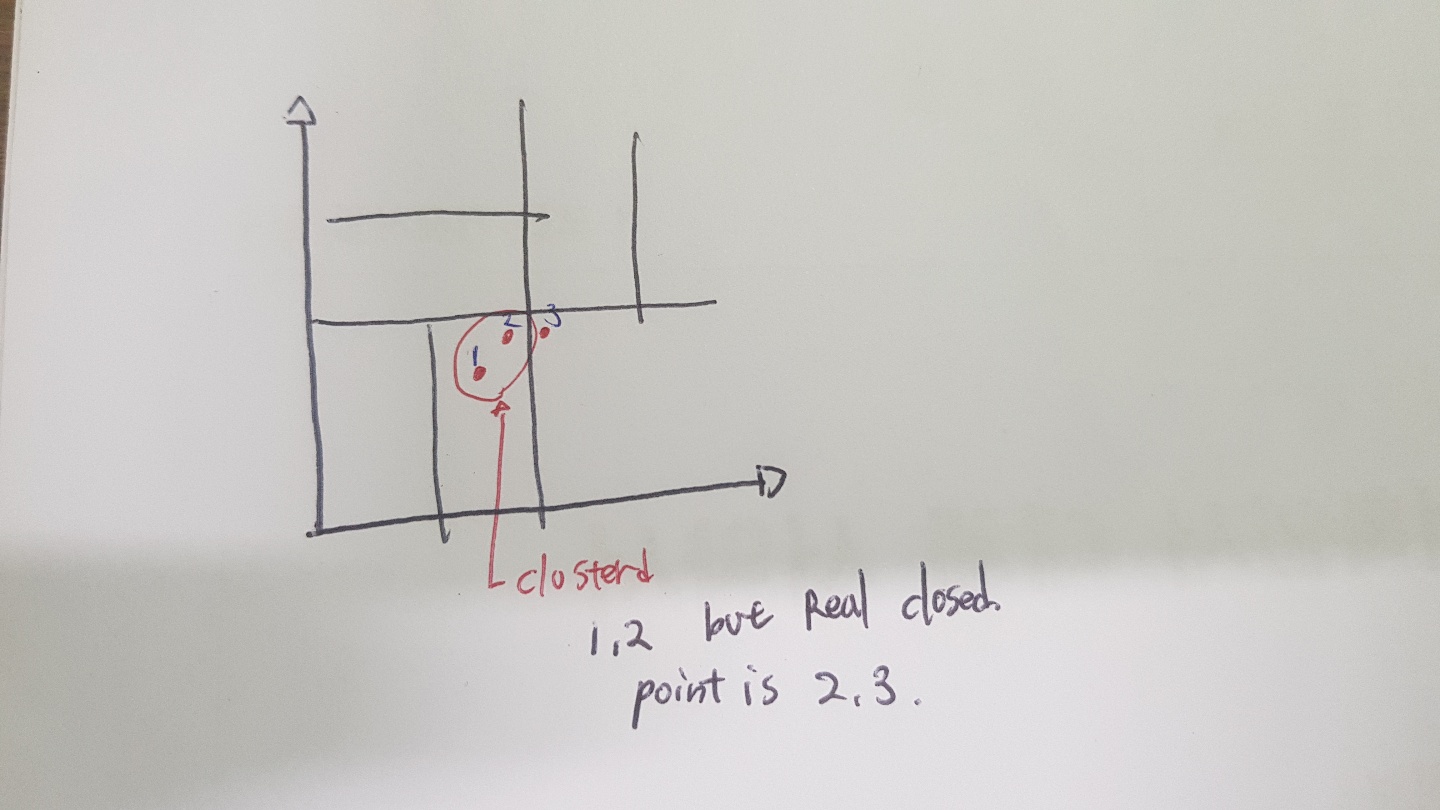 2 3
1
closterd
1,2 but Real closed.
point is 2.3.